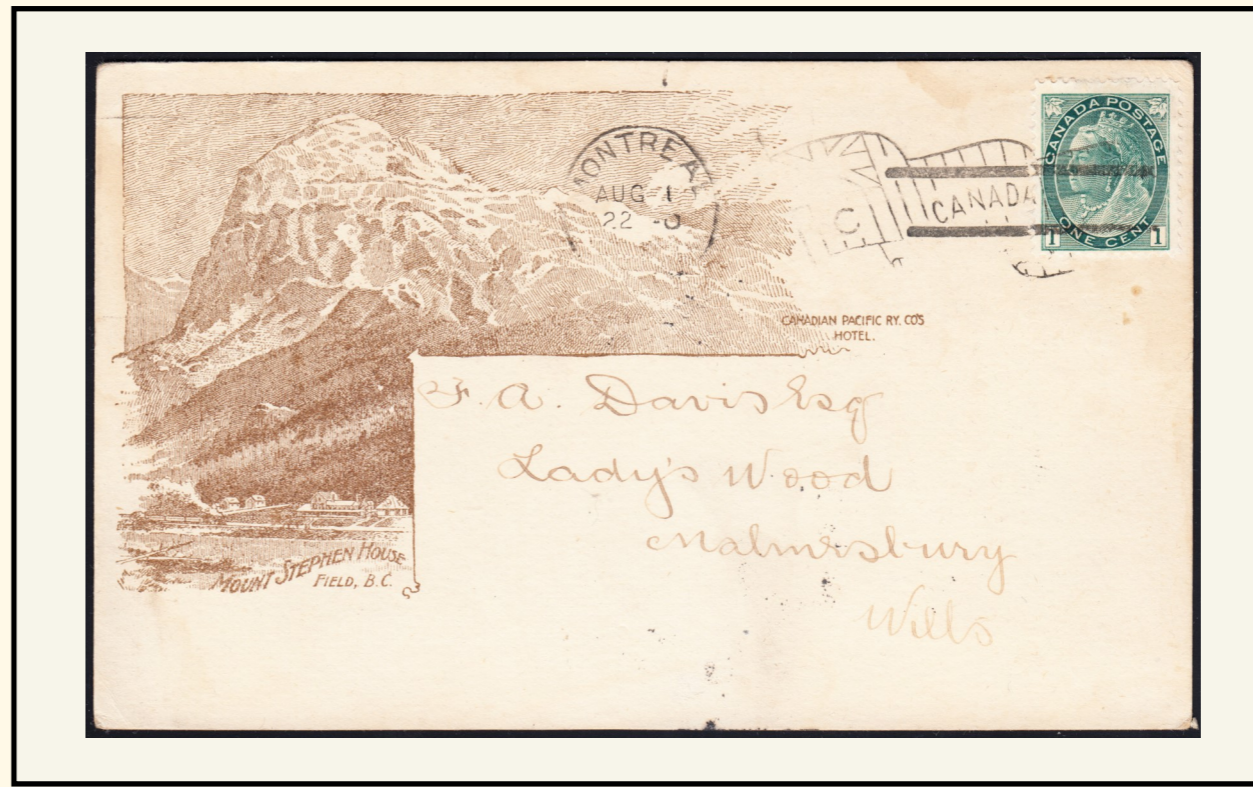 MONTREAL
AUG 1
22 -0
C
CANADA
CANADA POSTAGE
ONE CENT
1 1
CANADIAN PACIFIC RY. CO'S
HOTEL.
F. A. Davis Esq
Lady's Wood
Malmesbury
Wilts
MOUNT STEPHEN HOUSE
FIELD, B.C.